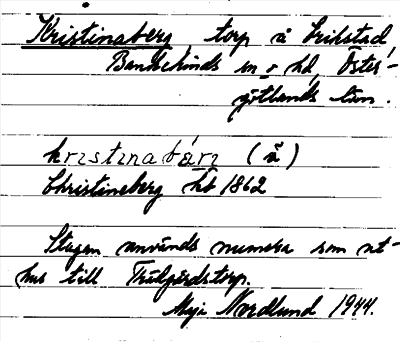 Kristinaberg torp å Erikstad
Bankekinds sn o hd, Öster-
götlands län.
kristinabärj (å)
Christineberg hb 1862
Stugan används numera som ut-
hus till Trädgårdstorp.
Maja Nordlund 1944.